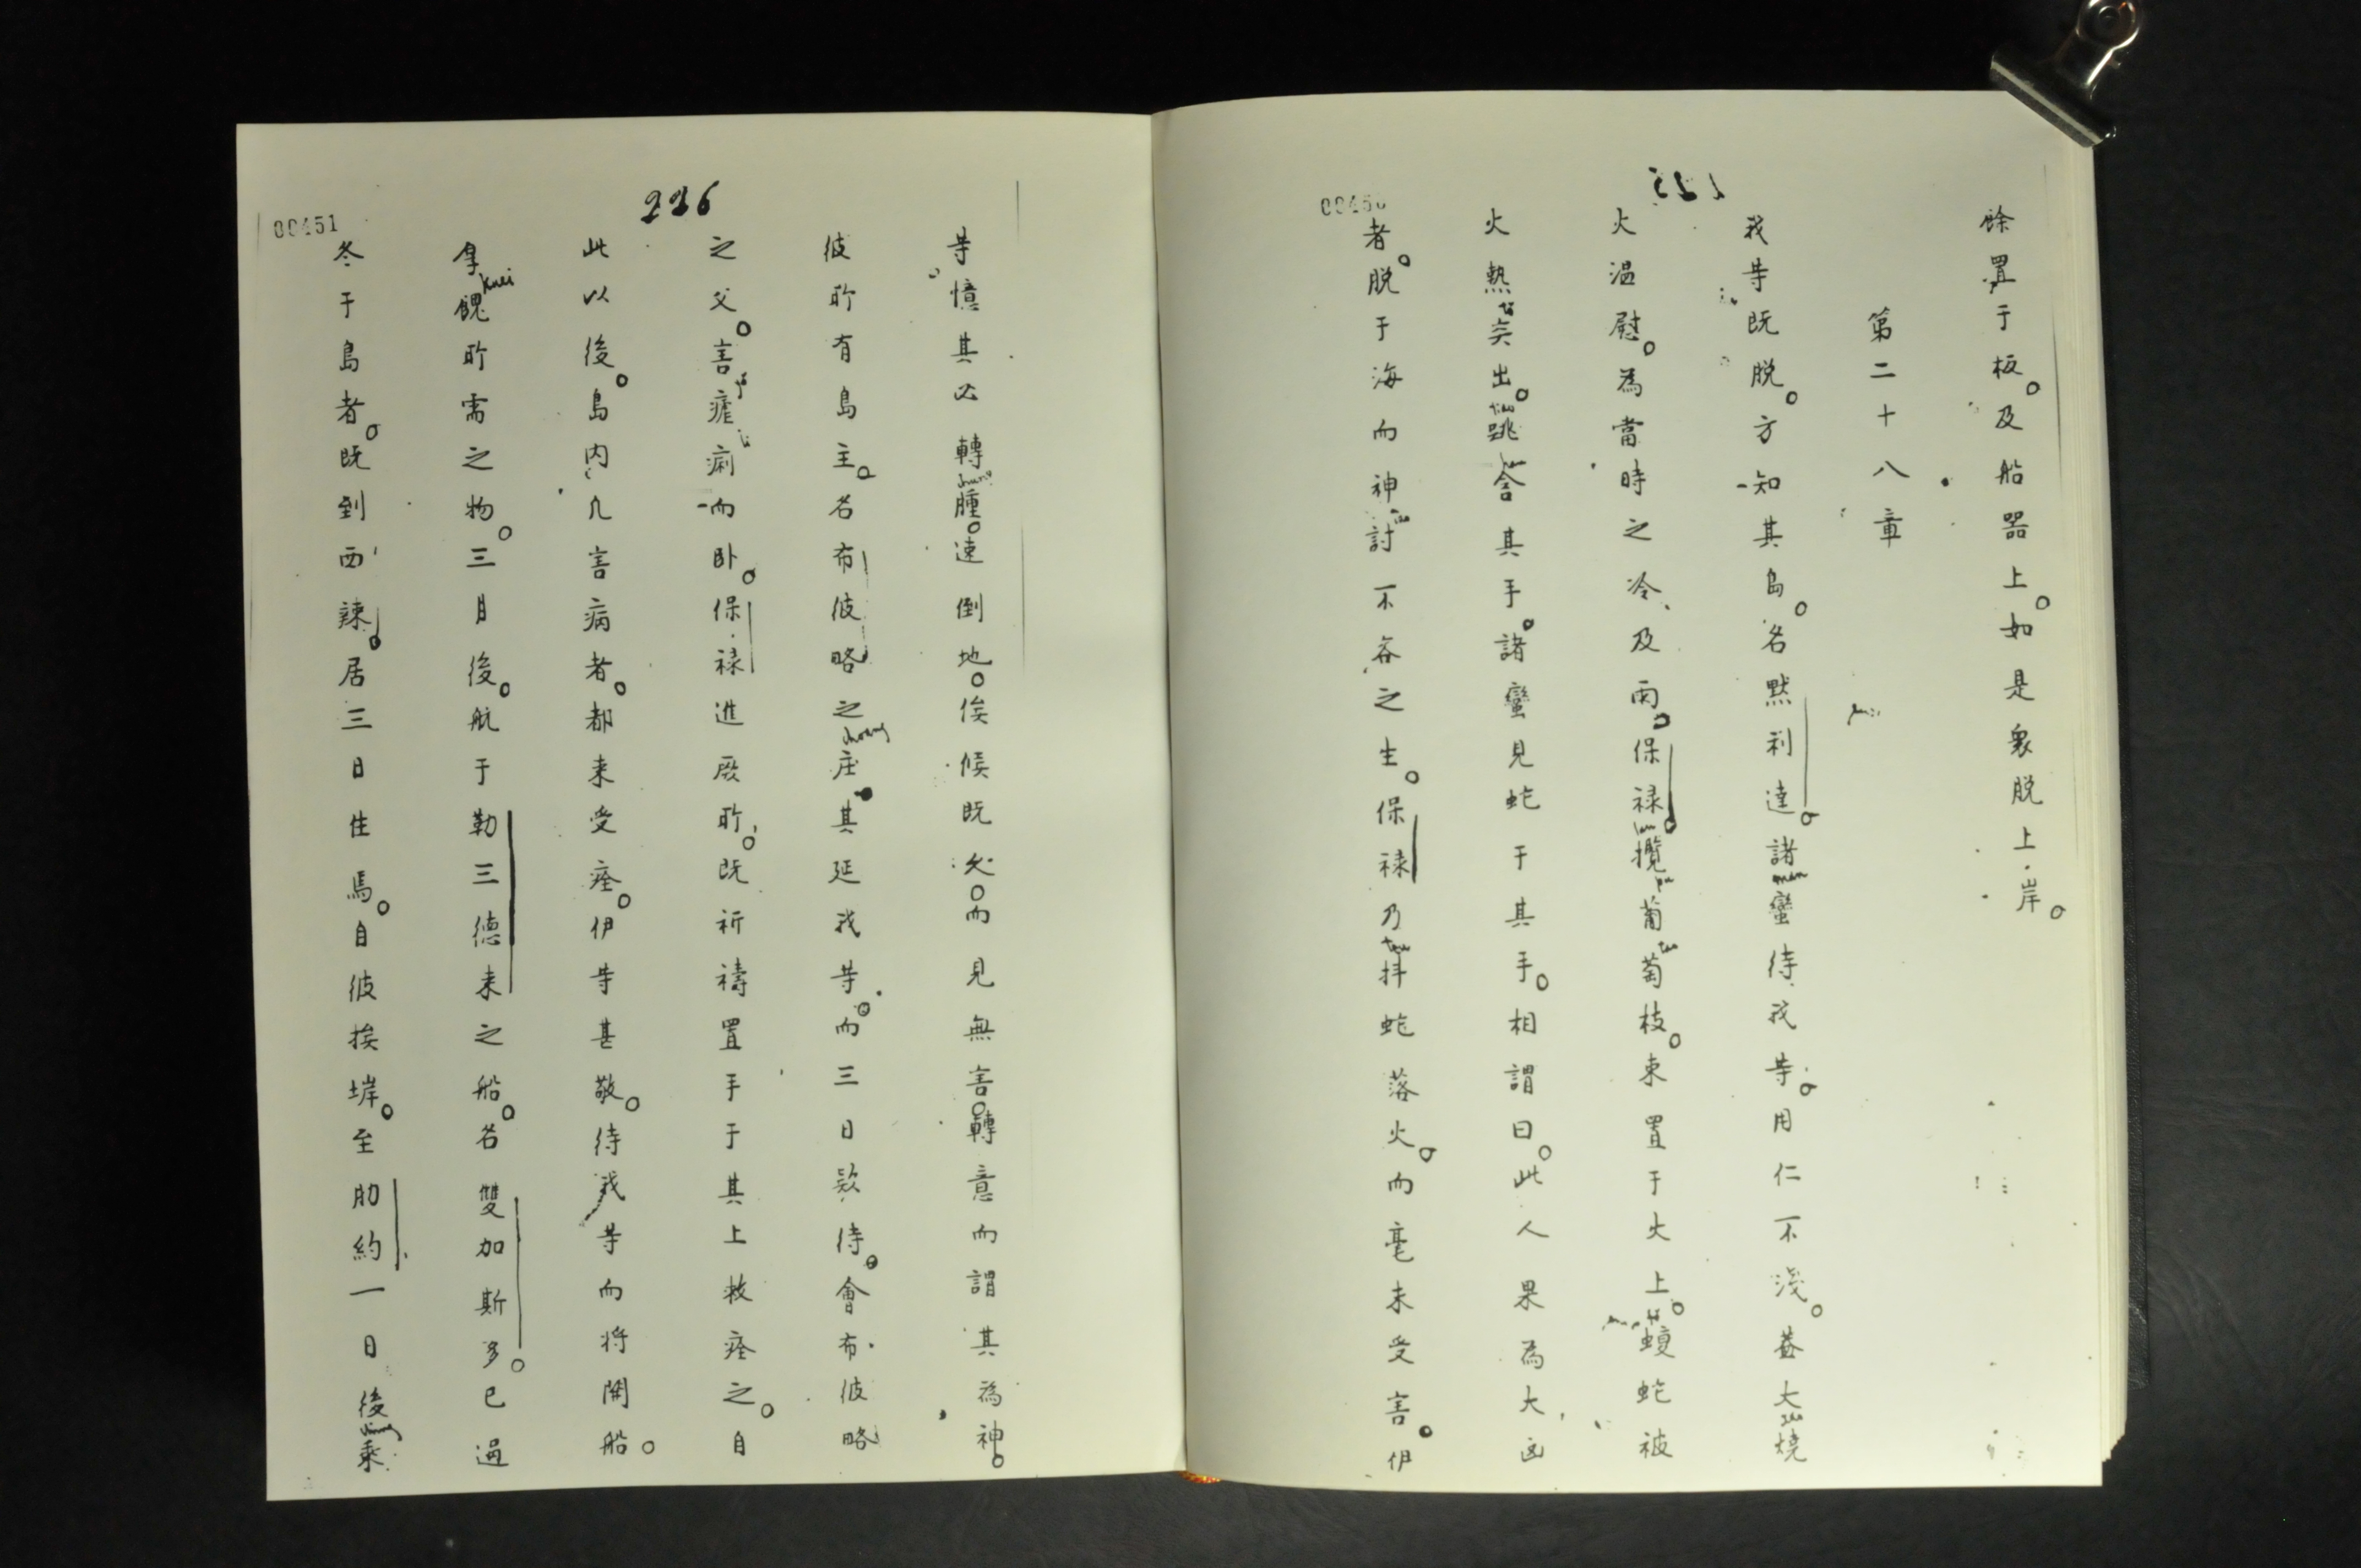 00450
餘置于板。及船器上。如是衆脱上岸。
第二十八章
我等既脱。方知其島。名黙利達。諸蠻待我等。用仁不淺。蓋大燒
火温慰。為當時之冷、及雨。保禄攬葡萄枝。束置于火上。蝮蛇被
火熱突出。跳舎其手。諸蠻見蛇于其手。相謂曰。此人果為大凶
者。脱于海而神討不容之生。保禄乃抖蛇落火。而毫未受害。伊
00451
226
等憶其必轉腫。速倒地。俟候既久。而見無害。轉意而謂其為神。
彼所有島主。名布彼略之庄。其延我等。而三日欵待。會布彼略
之父。害瘧痢而卧。保禄進厥所。既祈禱置手于其上救痊之。自
此以後。島内凡害病者。都来受痊。伊等甚敬。待我等而将開船。
拿餽所需之物。三月後。航于勒三德来之船。名雙加斯多。已過
冬于島者。既到西辣。居三日住焉。自彼挨塝。至肋約一日後乘
kuei